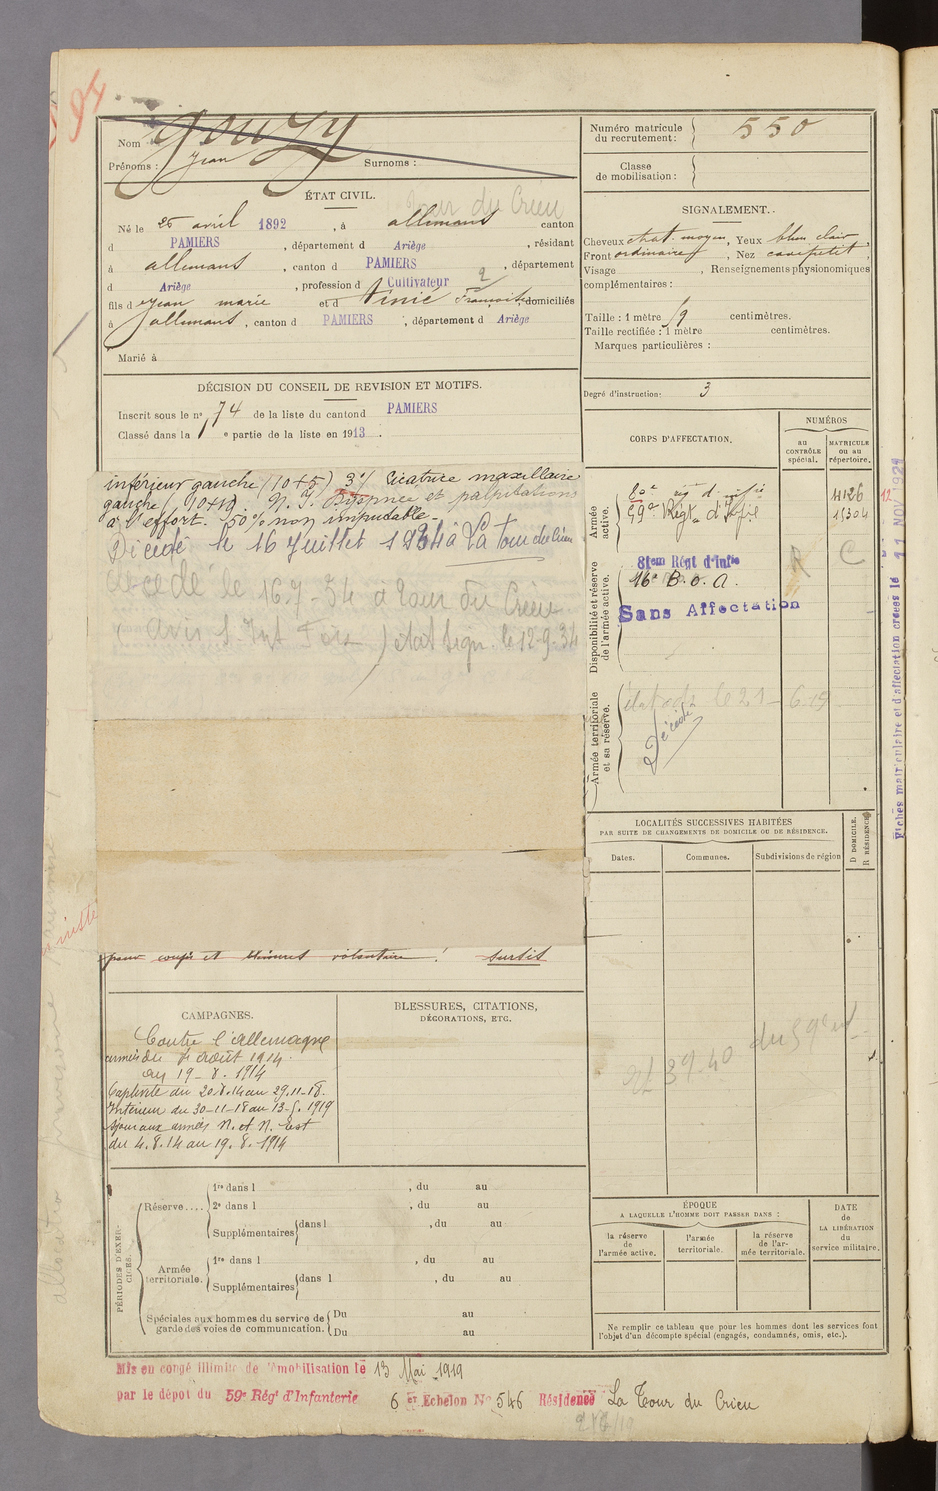 94
Nom Gouzy
Prénoms : Jean Surnoms :
ÉTAT CIVIL.
Tour du Crieu
Né le 25 avril 1892, à allemans canton
d PAMIERS, département d Ariège, résidant
à allemans, canton d PAMIERS, département
d Ariège, profession d Cultivateur 2
fils d Jean marie et d Françoise, domiciliés
à allemans, canton d PAMIERS, département d Ariège
Marié à
DÉCISION DU CONSEIL DE REVISION ET MOTIFS.
Inscrit sous le n° 74 de la liste du canton d PAMIERS
Classé dans la 1 e partie de la liste en 1913.
inférieur gauche (10+5) 3°/ cicatrice maxillaire
gauche (10+10) N. I. Dyspnée et palpitations
à l'effort. 50% non imputable.
Décédé le 16 Juillet 1934 à La Tour du Crieu
Décédé le 16-7-34 à Tour du Crieu
(avis S. Int Foix) état sign. le 12-9-34
sursis
CAMPAGNES.
Contre l'allemagne
armées du 4 août 1914
au 19-8.1914
Captivité du 20.8.14 au 29.11-18.
Intérieur du 30-11-18 au 13-5.1919
Séjour aux armées N. et N. Est
du 4.8.14 au 19.8.1914
BLESSURES, CITATIONS,
DÉCORATIONS, ETC.
PÉRIODES D'EXERCICES.
Réserve....
1re dans l , du au
2e dans l , du au
Supplémentaires dans l , du au
Armée territoriale.
1re dans l , du au
Supplémentaires dans l , du au
Spéciales aux hommes du service de garde des voies de communication.
Du au
Du au
Mis en congé illimité de démobilisation le 13 Mai 1919
par le dépot du 59e Régt d'Infanterie 6 Echelon No 546 Résidence La Tour du Crieu
Numéro matricule du recrutement : 550
Classe de mobilisation :
SIGNALEMENT.
Cheveux chat. moyen, Yeux bleu clair,
Front ordinaire, Nez
Visage , Renseignements physionomiques
complémentaires :
Taille : 1 mètre 59 centimètres.
Taille rectifiée : 1 mètre centimètres.
Marques particulières :
Degré d'instruction : 3
CORPS D'AFFECTATION.
NUMÉROS
au contrôle spécial.
MATRICULE ou au répertoire.
Armée active.
80e d'infie 4126
59e Régt d'Infie 15304
Disponibilité et réserve de l'armée active.
81em Régt d'Infie
16e B.o.a.
Sans Affectation
R C
Armée territoriale et sa réserve.
le 21-6.19
Décédé
Fiches matriculaire et d'affectation créées le 11 NOV 1921
LOCALITÉS SUCCESSIVES HABITÉES
PAR SUITE DE CHANGEMENTS DE DOMICILE OU DE RÉSIDENCE.
Dates. Communes. Subdivisions de région D DOMICILE. R RÉSIDENCE.
39-40 du 59e
ÉPOQUE
A LAQUELLE L'HOMME DOIT PASSER DANS :
la réserve de l'armée active.
l'armée territoriale.
la réserve de l'armée territoriale.
DATE de LA LIBÉRATION du service militaire.
Ne remplir ce tableau que pour les hommes dont les services font
l'objet d'un décompte spécial (engagés, condamnés, omis, etc.).